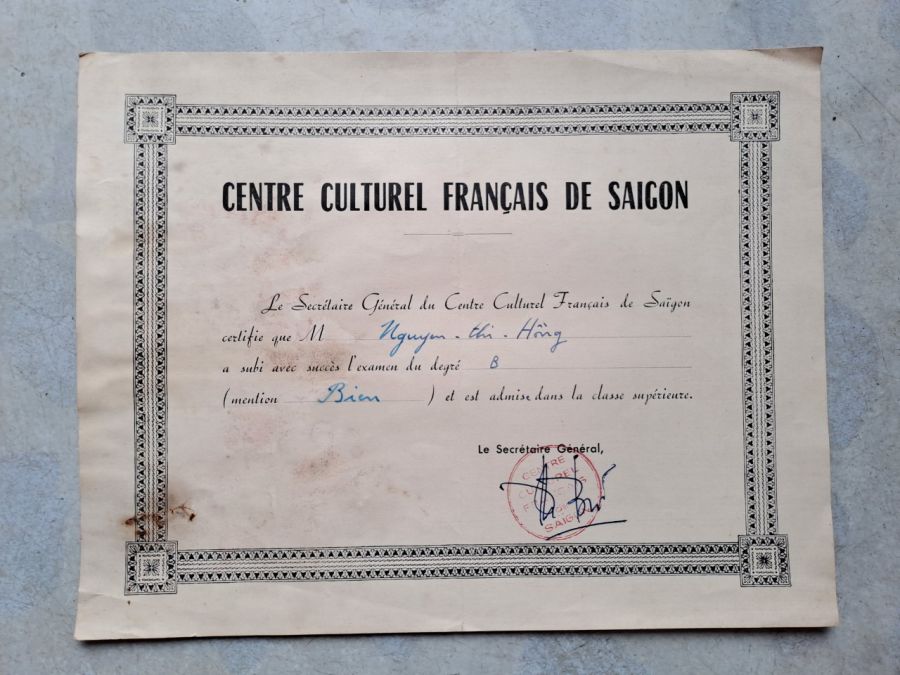 CENTRE CULTUREL FRANÇAIS DE SAIGON
Le Secrétaire Général du Centre Culturel Français de Saïgon
certifie que M Nguyen - thi - Hông
a subi avec succès l'examen du degré B
(mention Bien ) et est admise dans la classe supérieure.
Le Secrétaire Général,
CENTRE
CULTUREL
SAIGON